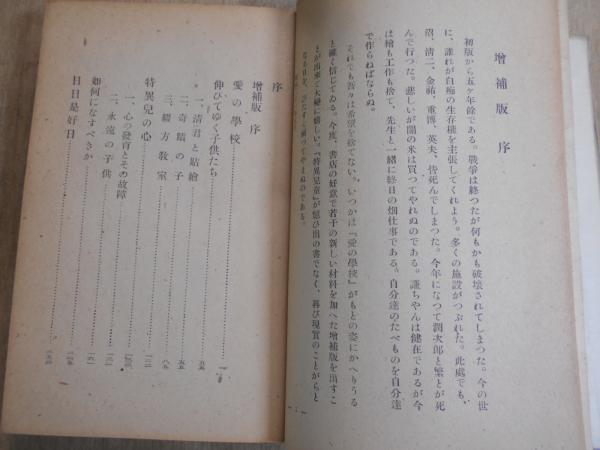 增補版序
初版から五ケ年餘である。戰爭は終つたが何もかも破壞されてしまつた。今の世
に、誰れが白痴の生存權を主張してくれよう。多くの施設がつぶれた。此處でも、
沼、清二、金祐、重博、英夫、皆死んでしまつた。今年になつて潤次郎と繁とが死
んで行つた。悲しいが闇の米は買つてやれぬのである。謙ちやんは健在であるが今
は繪も工作も捨て、先生と一緒に終日の畑仕事である。自分達のたべものを自分達
で作らねばならぬ。
それでも吾々は希望を捨てない。いつかは『愛の學校』がもとの姿にかへりうる
と確く信じてゐる。今度、書店の好意で若干の新しい材料を加へた增補版を出すこ
とが出來て大變に嬉しい。『特異兒童』が想ひ出の書でなく、再び現實のことがらと
なる日を、ひたすら願つてやまぬのである。
序
增補版序
愛の學校
伸びてゆく子供たち
一、清君と貼繪
二、奇蹟の子
三、綴方教室
特異兒の心
一、心の發育とその故障
二、永遠の子供
如何になすべきか
日日是好日